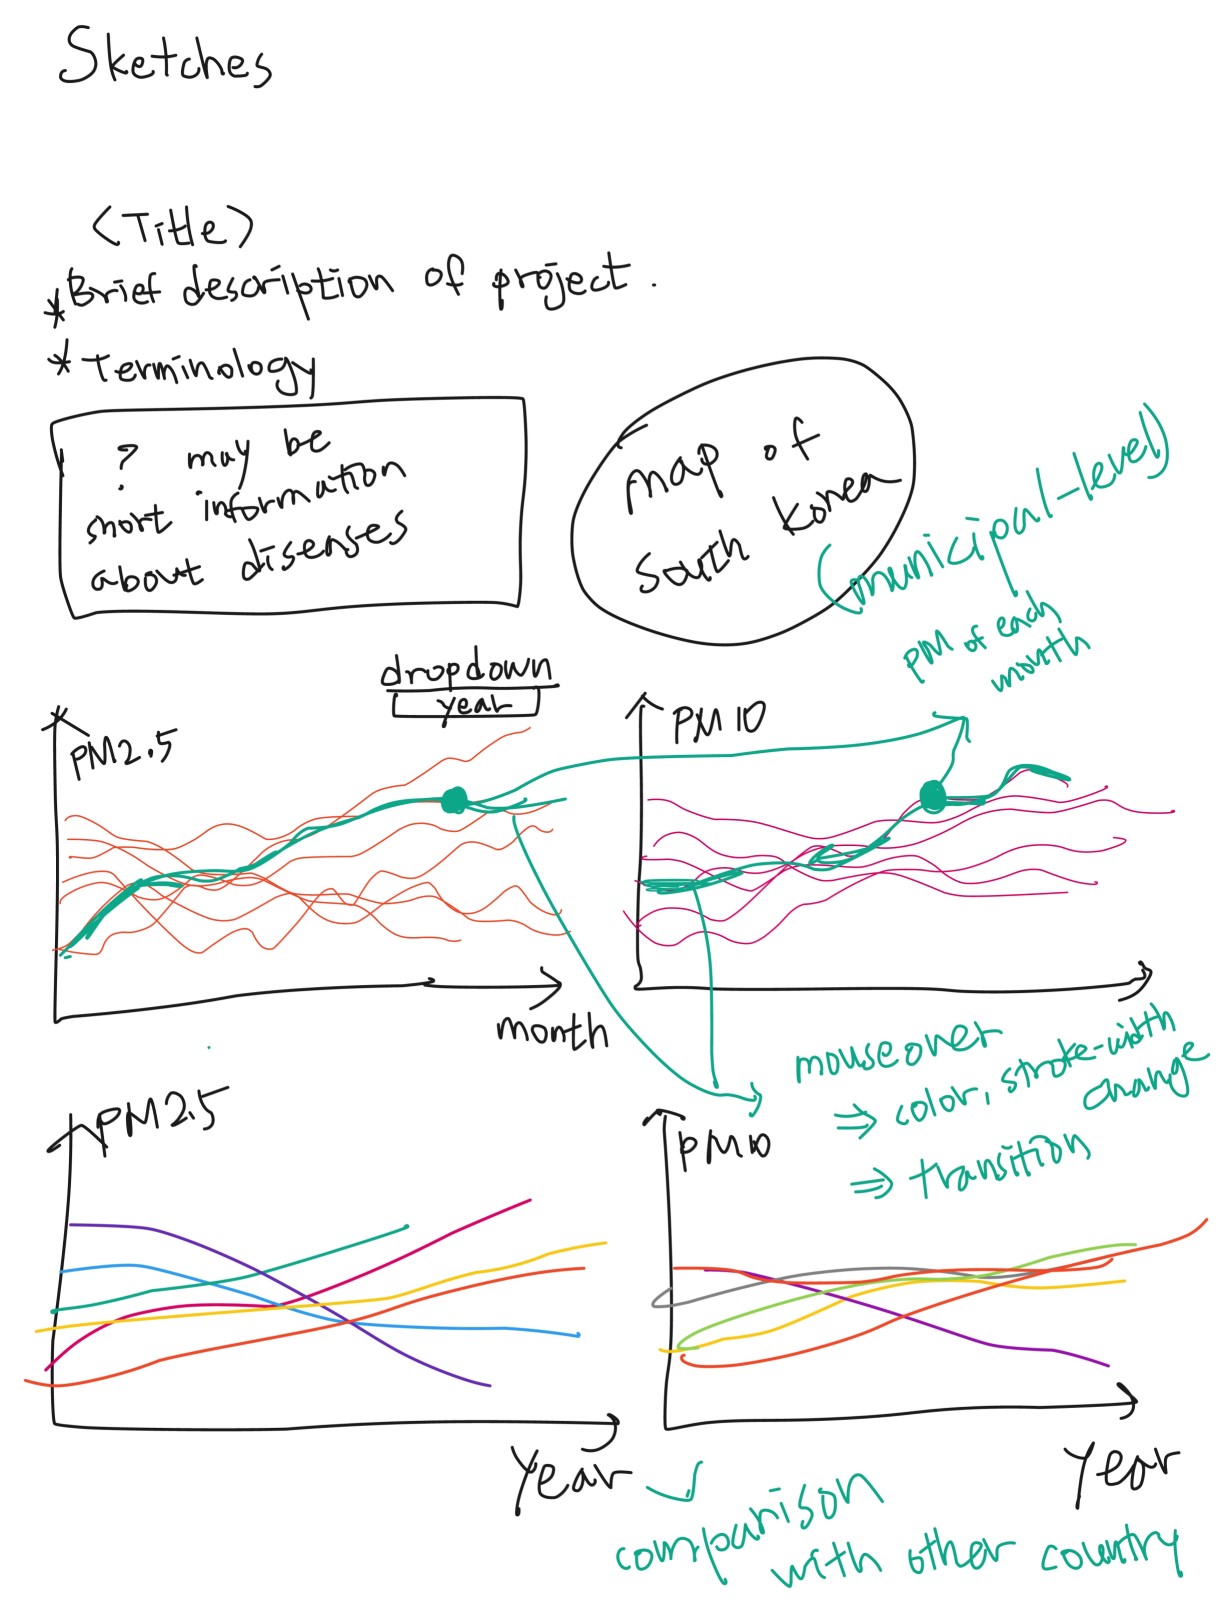 Sketches
<Title>
*Brief description of project.
* Terminology
? may be
short information
about disenses
map of
south korea
(municipal-level)
PM of each
month
dropdown
year
PM2.5
PM 10
month
mouseover
⇒ color, stroke-width
change
⇒ transition
PM2.5
PM10
Year
Year
comparison
with other country